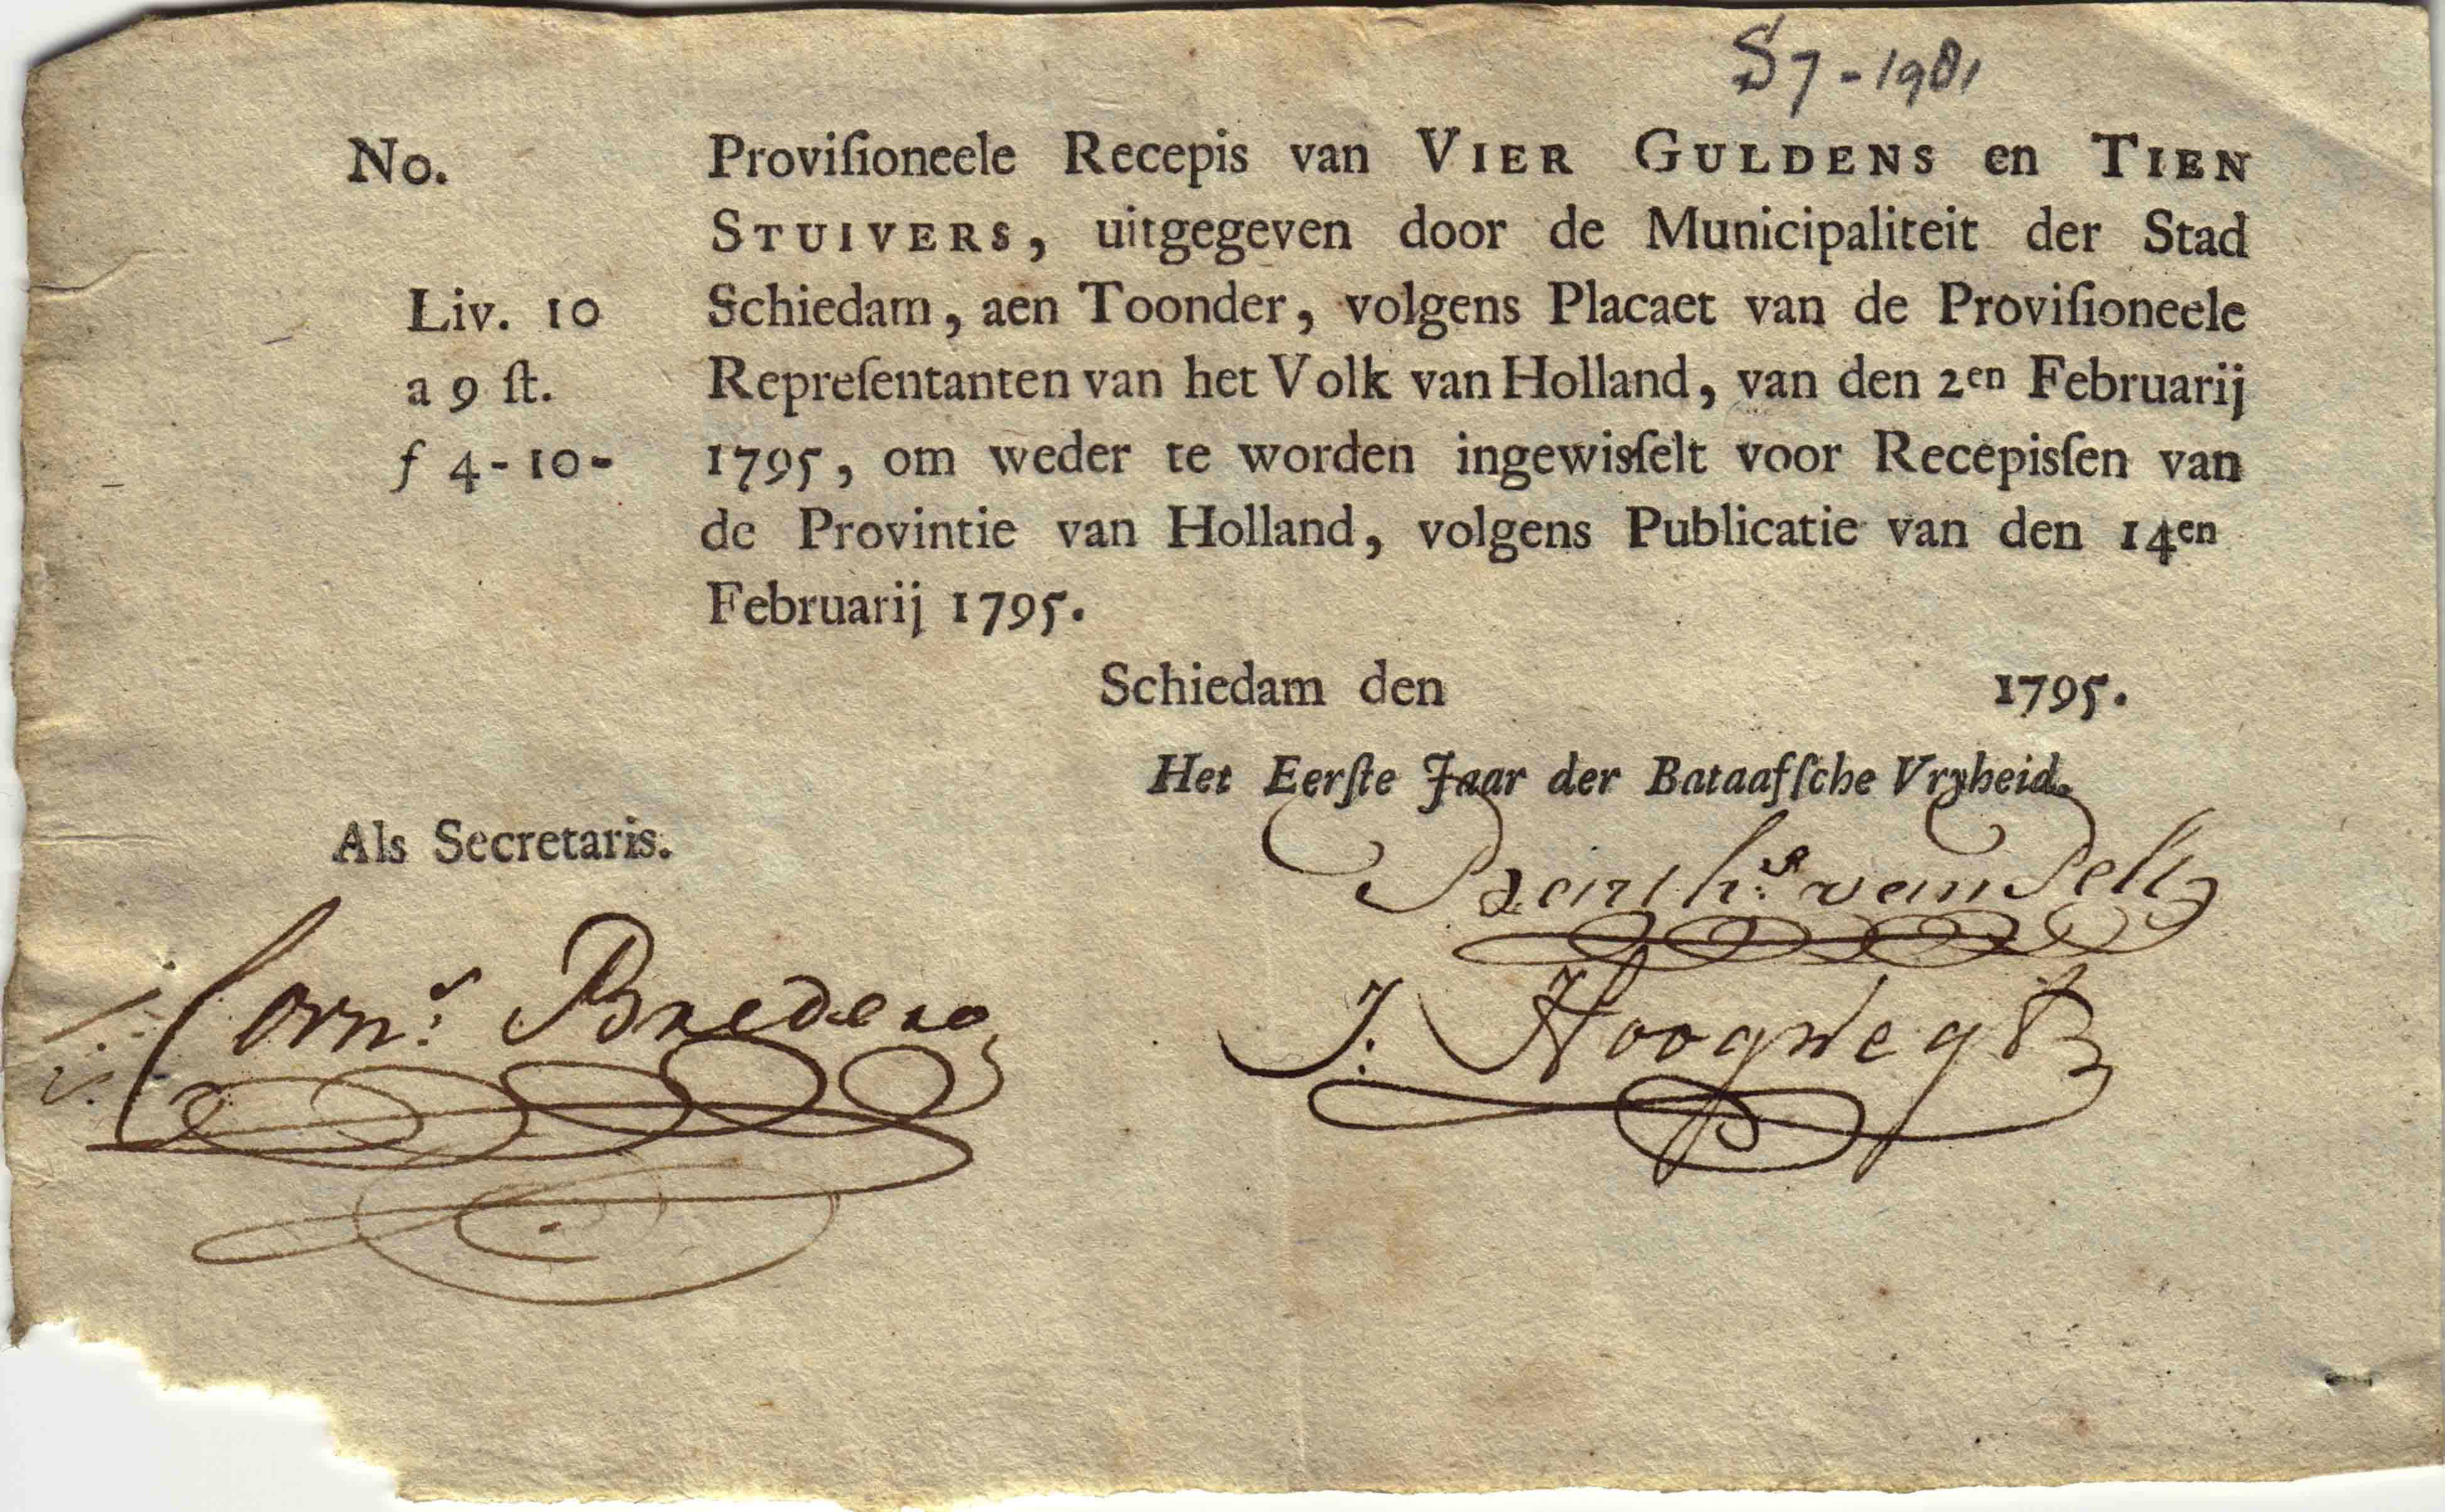 S7-1981
No.
Proviſioneele Recepis van VIER GULDENS en TIEN
STUIVERS, uitgegeven door de Municipaliteit der Stad
Liv. 10
Schiedam, aen Toonder, volgens Placaet van de Proviſioneele
a 9 ſt.
Repreſentanten van het Volk van Holland, van den 2en Februarij
f 4-10-
1795, om weder te worden ingewisſelt voor Recepisſen van
de Provintie van Holland, volgens Publicatie van den 14en
Februarij 1795.
Schiedam den 1795.
Het Eerſte Jaar der Bataafſche Vryheid.
Als Secretaris.
van Pelt
Corns: Bredero
J. Hoogwegt